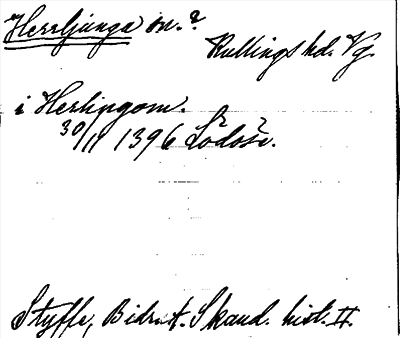 Herrljunga sn.?
Kullings hd. Vg.
i Herlingom.
30/11 1396 Lödöse.
Styffe, Bidr. t. Skand. hist. II.